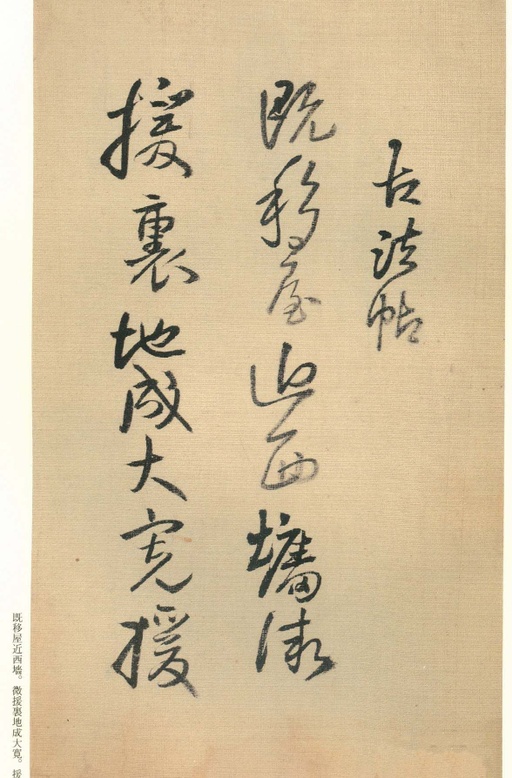 古法帖
既移屋近西墙微
援裏地成大宽援
既移屋近西墙。微援裏地成大宽。援